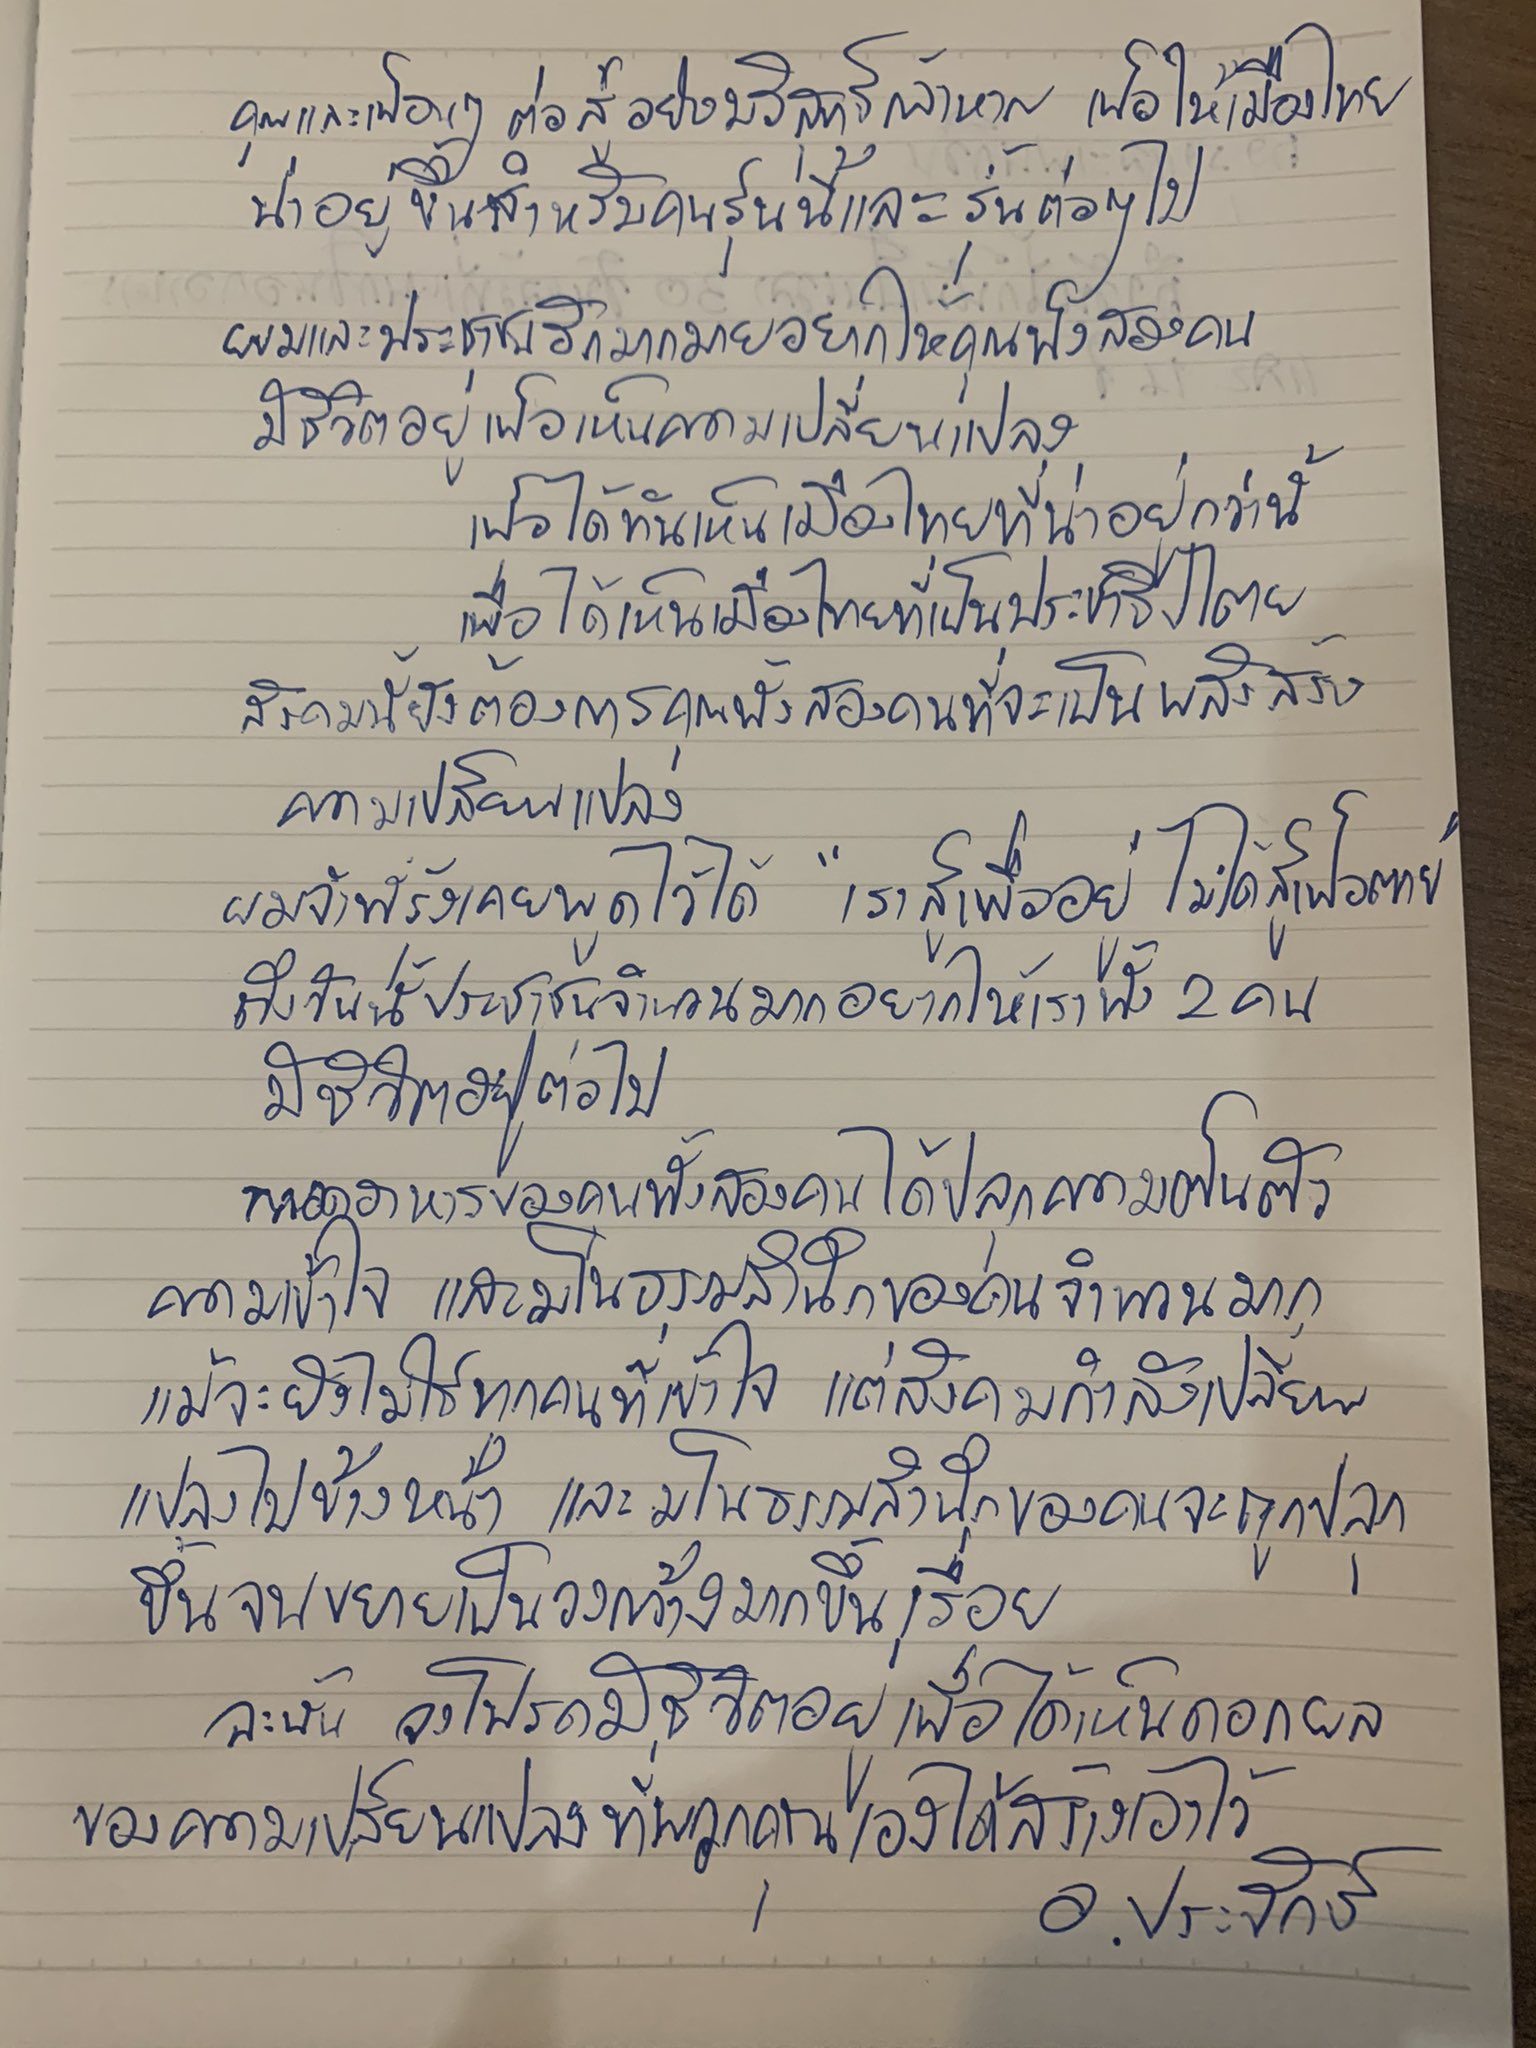 คุณและเพื่อนๆ ต่อสู้อย่างบริสุทธิ์กล้าหาญ เพื่อให้เมืองไทย
น่าอยู่ขึ้นสำหรับคนรุ่นนี้และรุ่นต่อๆไป
ผมและประชาชนอีกมากมายอยากให้คุณทั้งสองคน
มีชีวิตอยู่เพื่อเห็นความเปลี่ยนแปลง
เพื่อได้ทันเห็นเมืองไทยที่น่าอยู่กว่านี้
เพื่อได้เห็นเมืองไทยที่เป็นประชาธิปไตย
สังคมนี้ยังต้องการคุณทั้งสองคนที่จะเป็นพลังสร้าง
ความเปลี่ยนแปลง
ผมจำที่รุ้งเคยพูดไว้ได้ "เราสู้เพื่ออยู่ ไม่ได้สู้เพื่อตาย"
ถึงวันนี้ประชาชนจำนวนมากอยากให้เราทั้ง 2 คน
มีชีวิตอยู่ต่อไป
การอดอาหารของคุณทั้งสองคนได้ปลุกความตื่นตัว
ความเข้าใจ และมโนธรรมสำนึกของคนจำนวนมาก
แม้จะยังไม่ใช่ทุกคนที่เข้าใจ แต่สังคมกำลังเปลี่ยน
แปลงไปข้างหน้า และมโนธรรมสำนึกของคนจะถูกปลุก
ขึ้นจนขยายเป็นวงกว้างมากขึ้นเรื่อย
ฉะนั้น จงโปรดมีชีวิตอยู่เพื่อได้เห็นดอกผล
ของความเปลี่ยนแปลงที่พวกคุณเองได้สร้างเอาไว้
อ.ประจักษ์